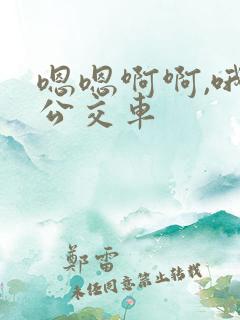 嗯嗯啊啊,哦
公交车
鄭雷
未经同意禁止转载